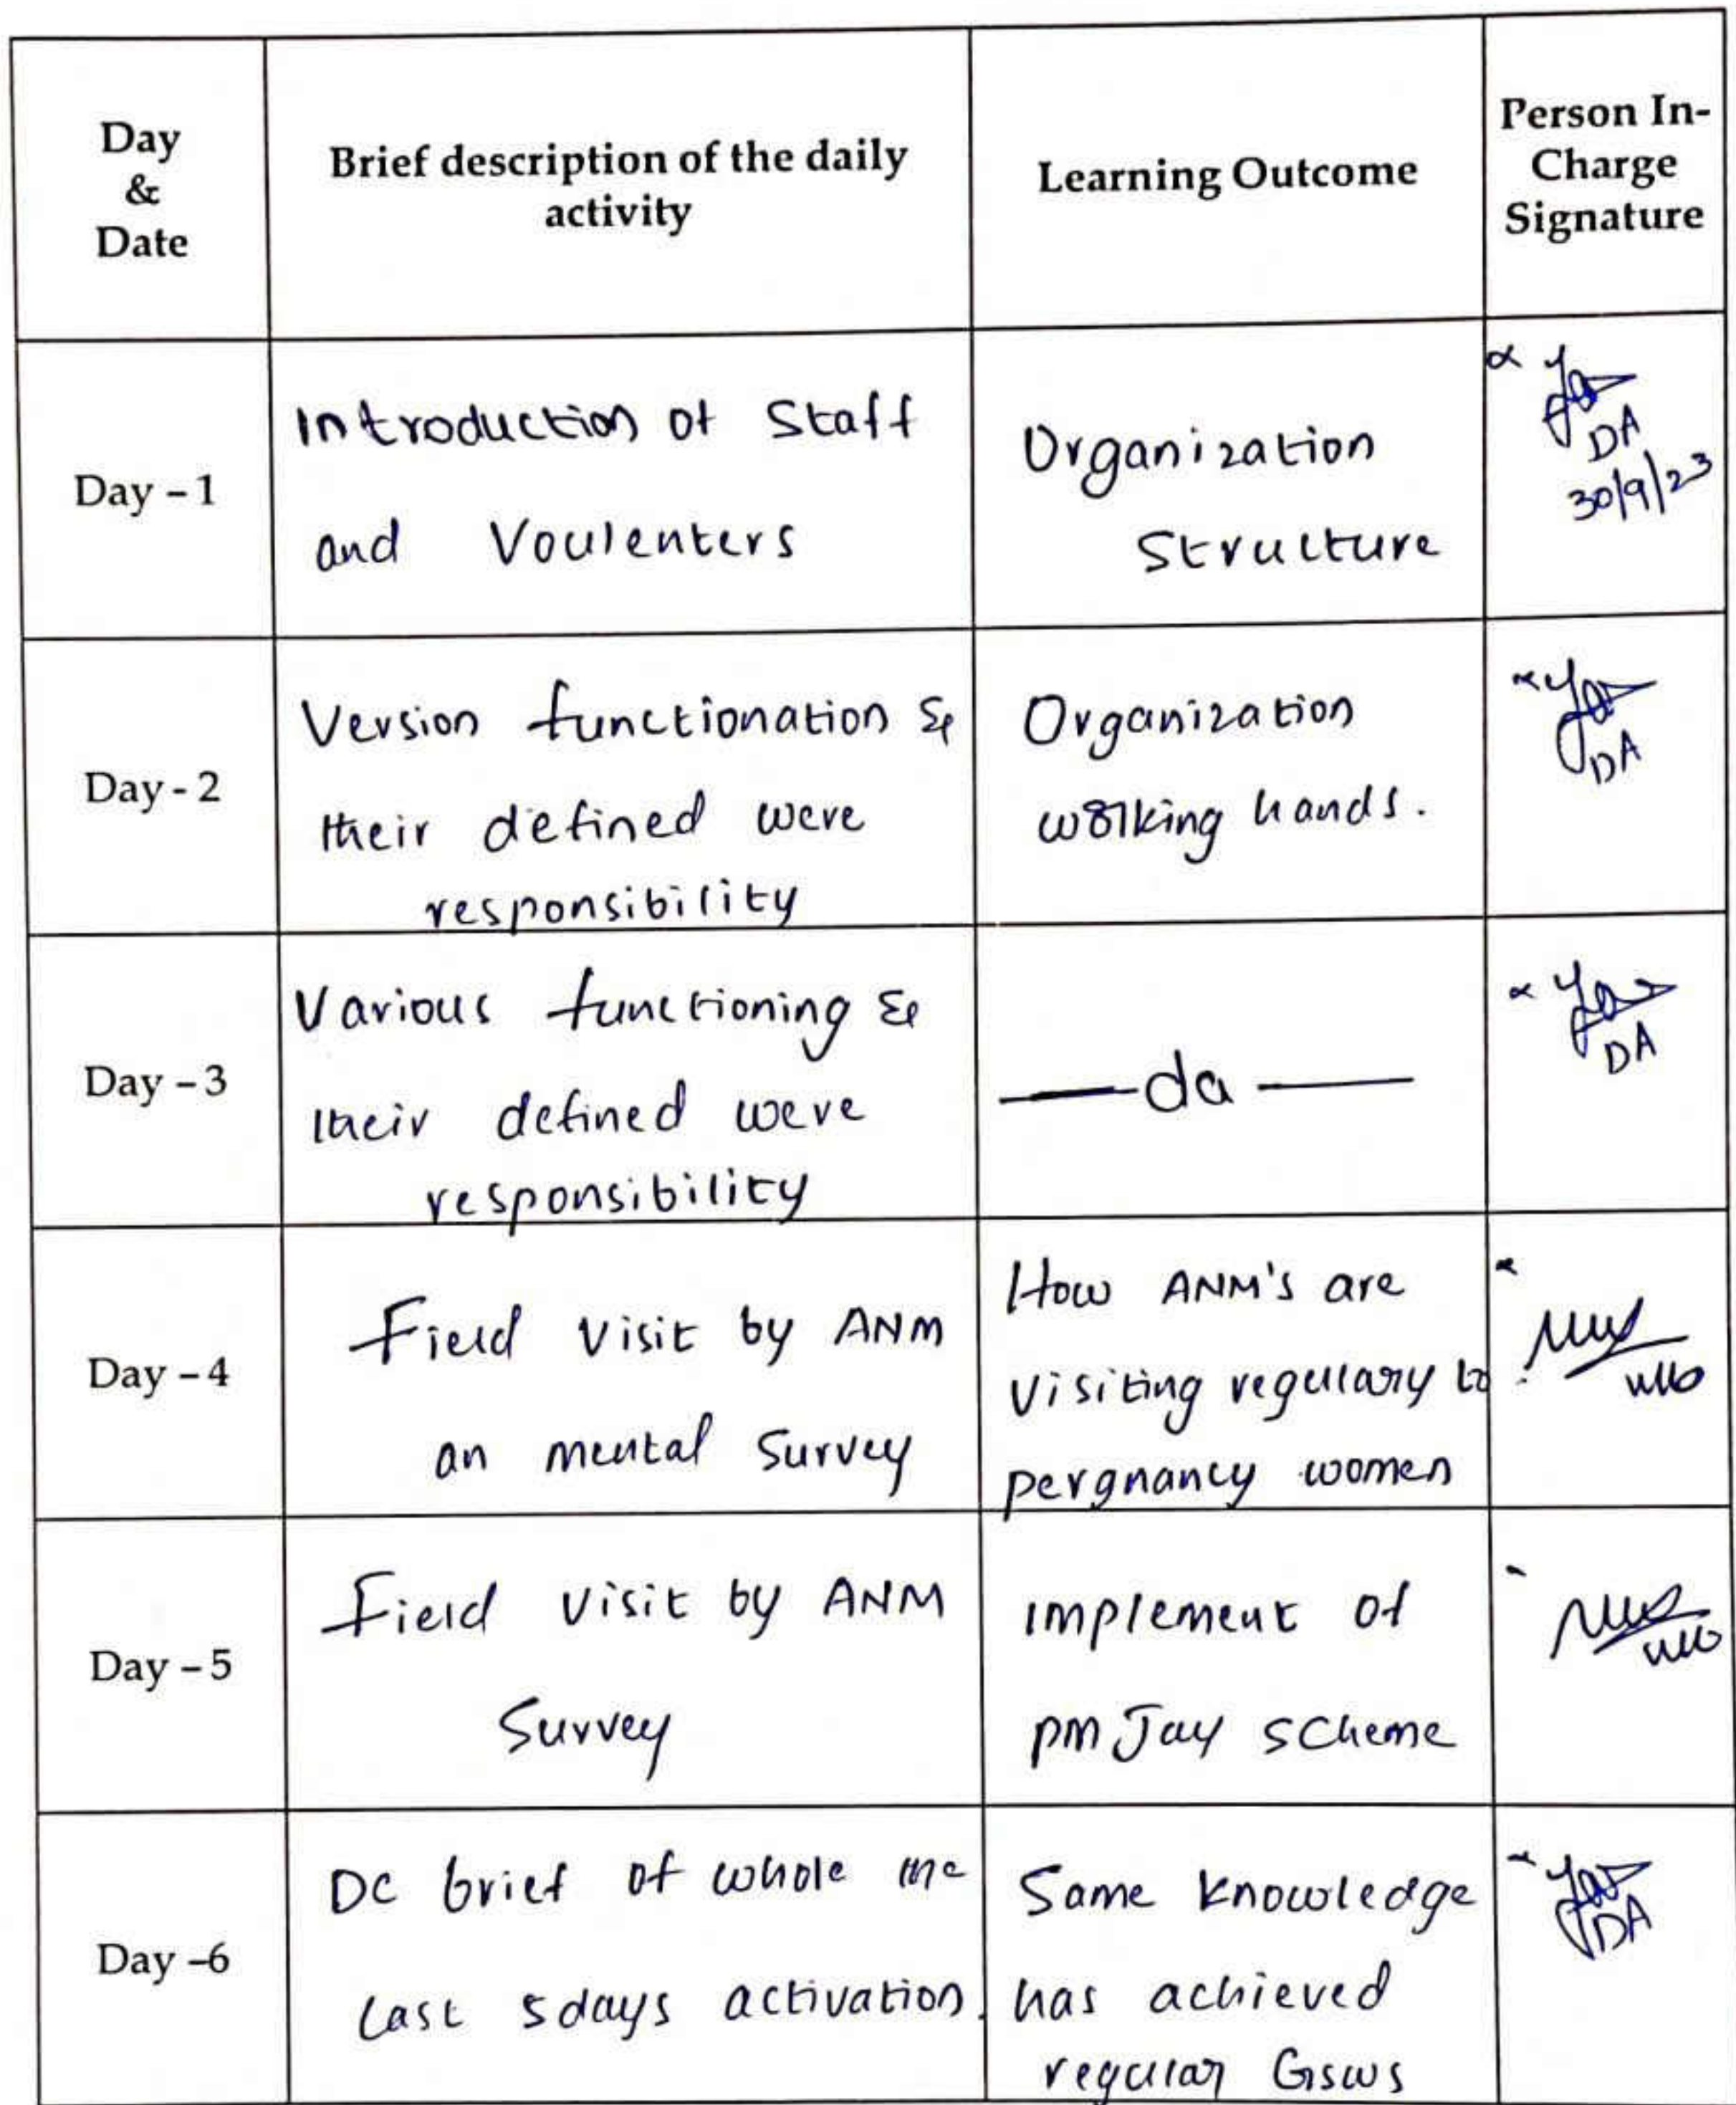 Day
&
Date
Brief description of the daily
activity
Learning Outcome
Person In-
Charge
Signature
Day - 1
Introduction of Staff
and Voulenters
Organization
Structure
DA
30/9/23
Day - 2
Version functionation &
their defined were
responsibility
Organization
working hands.
DA
Day - 3
Various functioning &
their defined were
responsibility
— da —
DA
Day - 4
Field visit by ANM
an mental Survey
How ANM's are
visiting regulary to
pergnancy women
Day - 5
Field visit by ANM
Survey
implement of
pm Jay scheme
Day - 6
DC brief of whole the
last 5days activation.
Same knowledge
has achieved
regular Gsws
DA